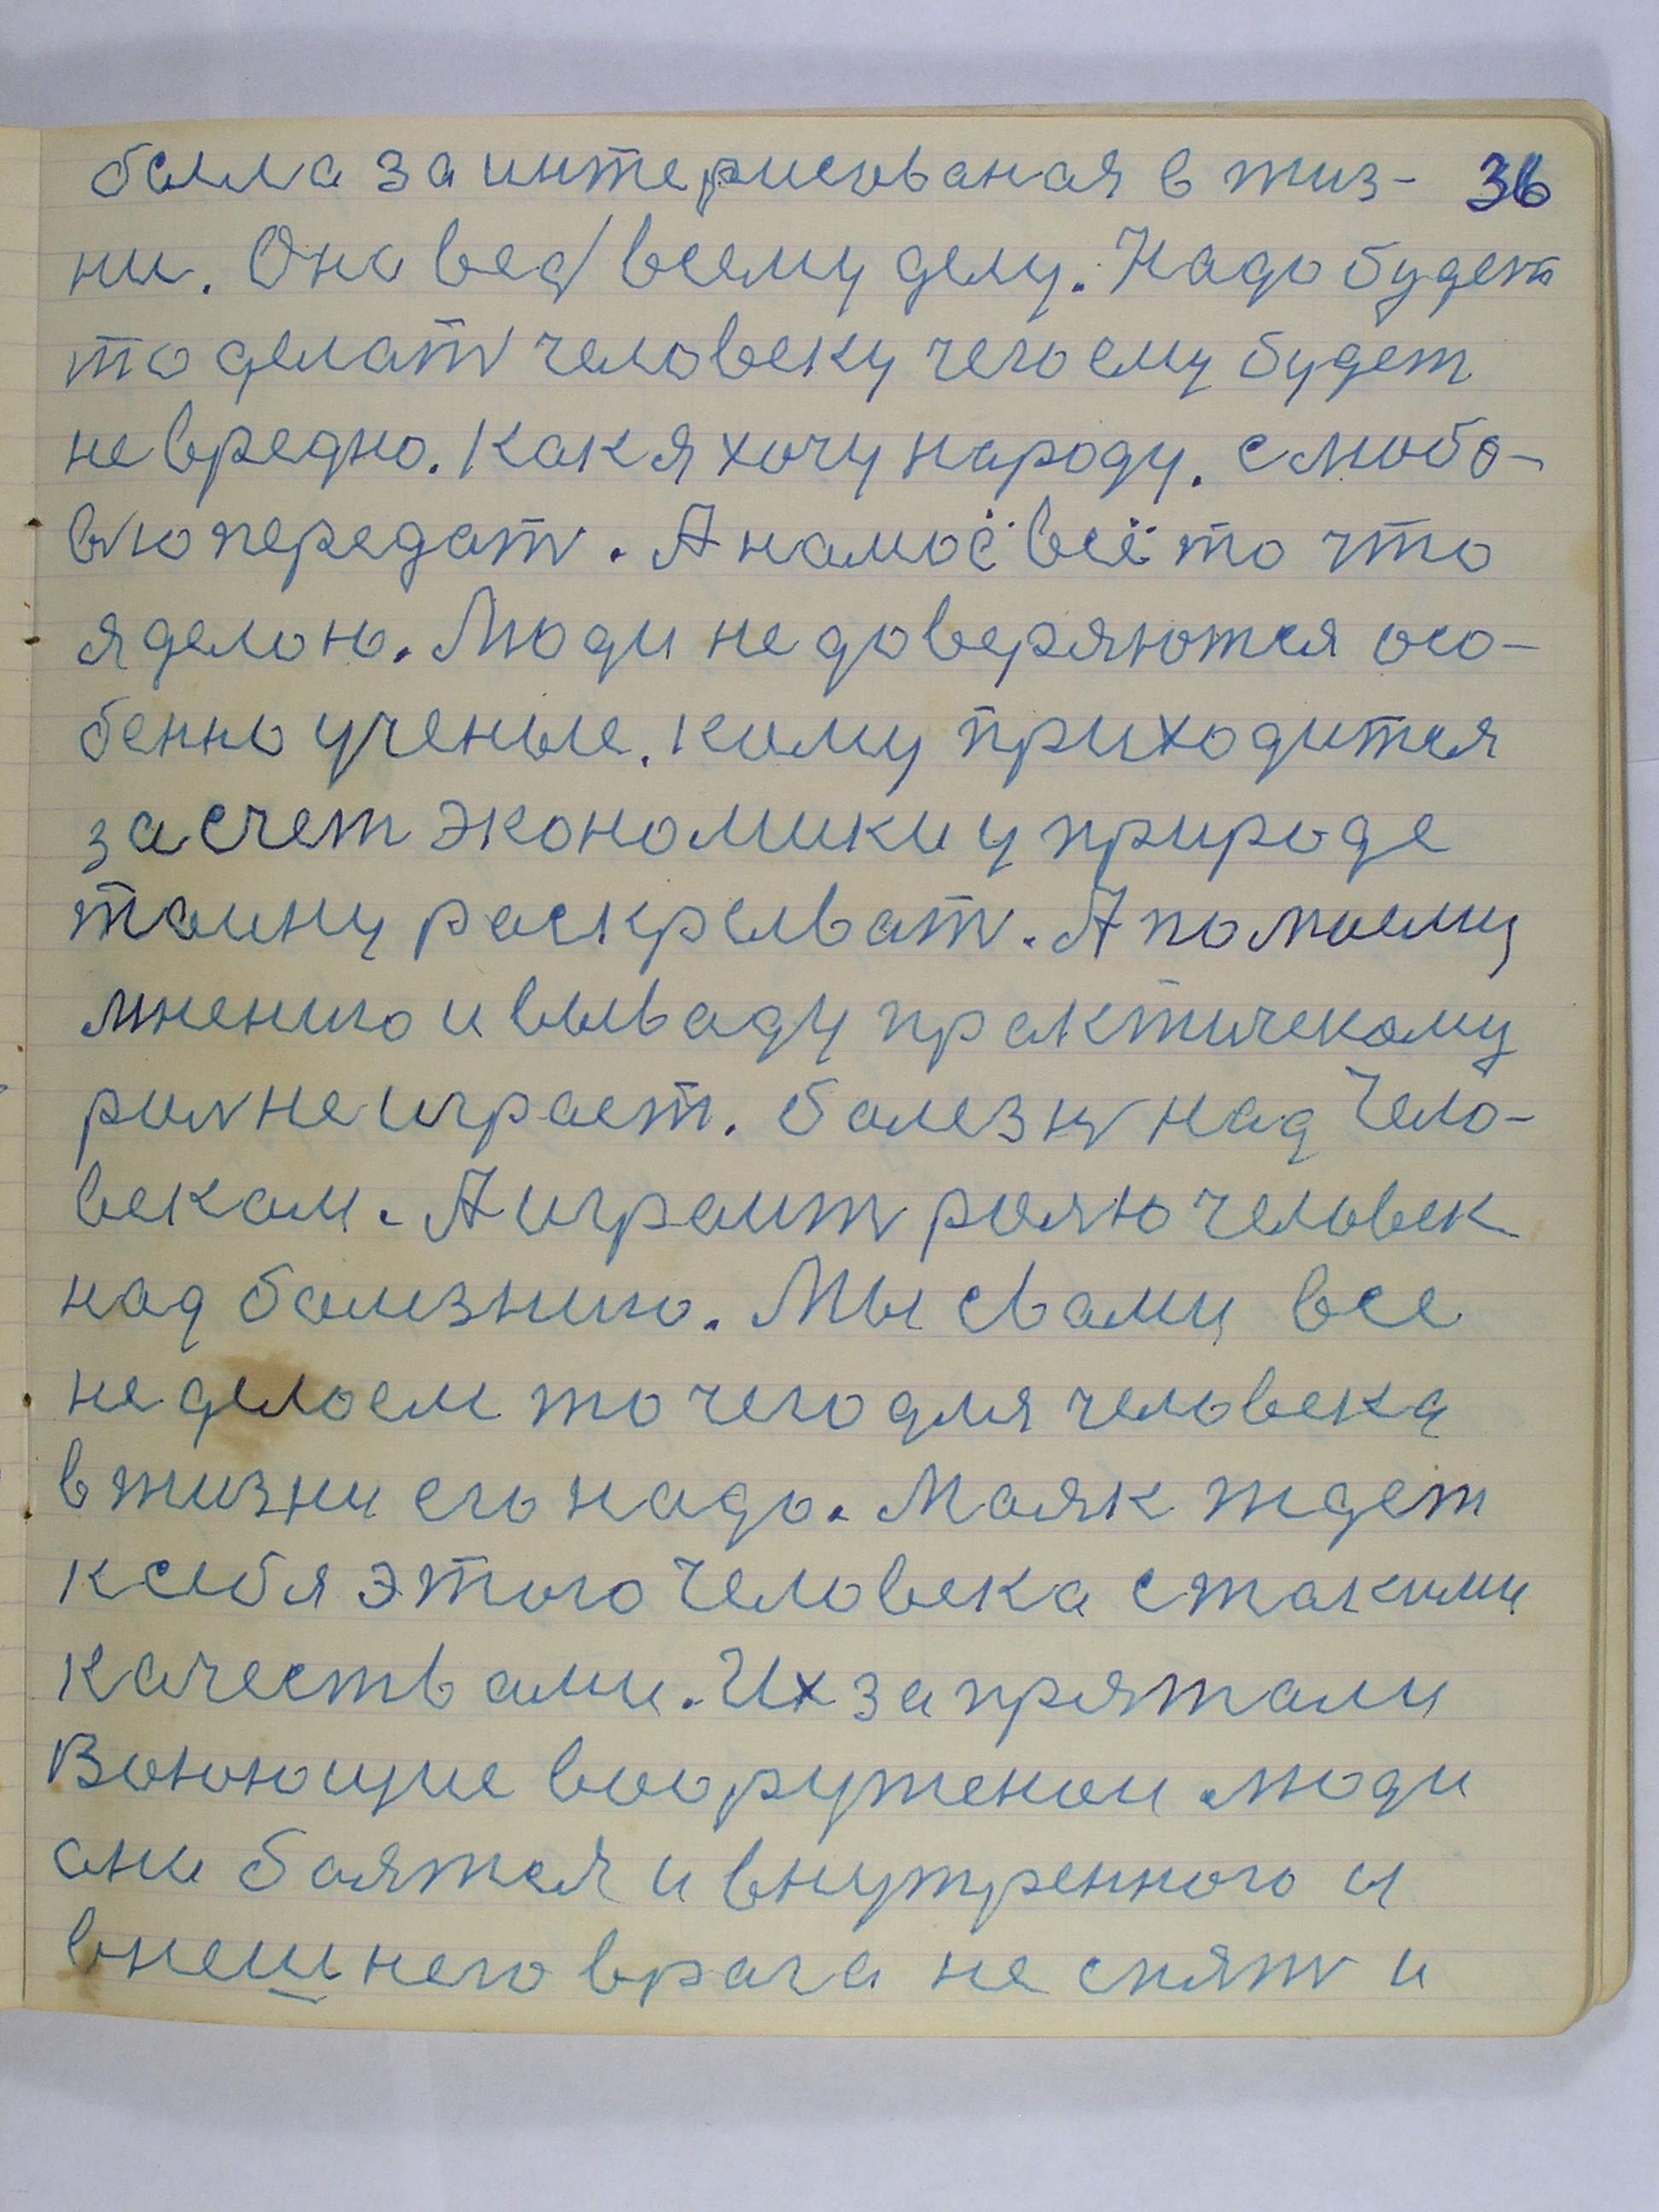 была заинтерисованая в жиз- 36
ни. Она вед всему делу. Надо будет
то делать человеку чего ему будет
не вредно. Как я хочу народу. с любо-
вью передать. А на моё всё то что
я делаю. Люди не доверяются осо-
бенно ученые. кому приходится
за счет экономики у природе
таину раскрывать. А по моему
мнению и вываду практичекому
роль не играет. болезнь над Чело-
векам. А играить ролю человек
над болизнию. Мы свами все
не делаем то чего для человека
в жизни его надо. Маяк ждет
к себя этого Человека с такими
качествами. Их запрятали
Воюющие вооружении люди
они боятся и внутренного и
внешнего врага не спять и